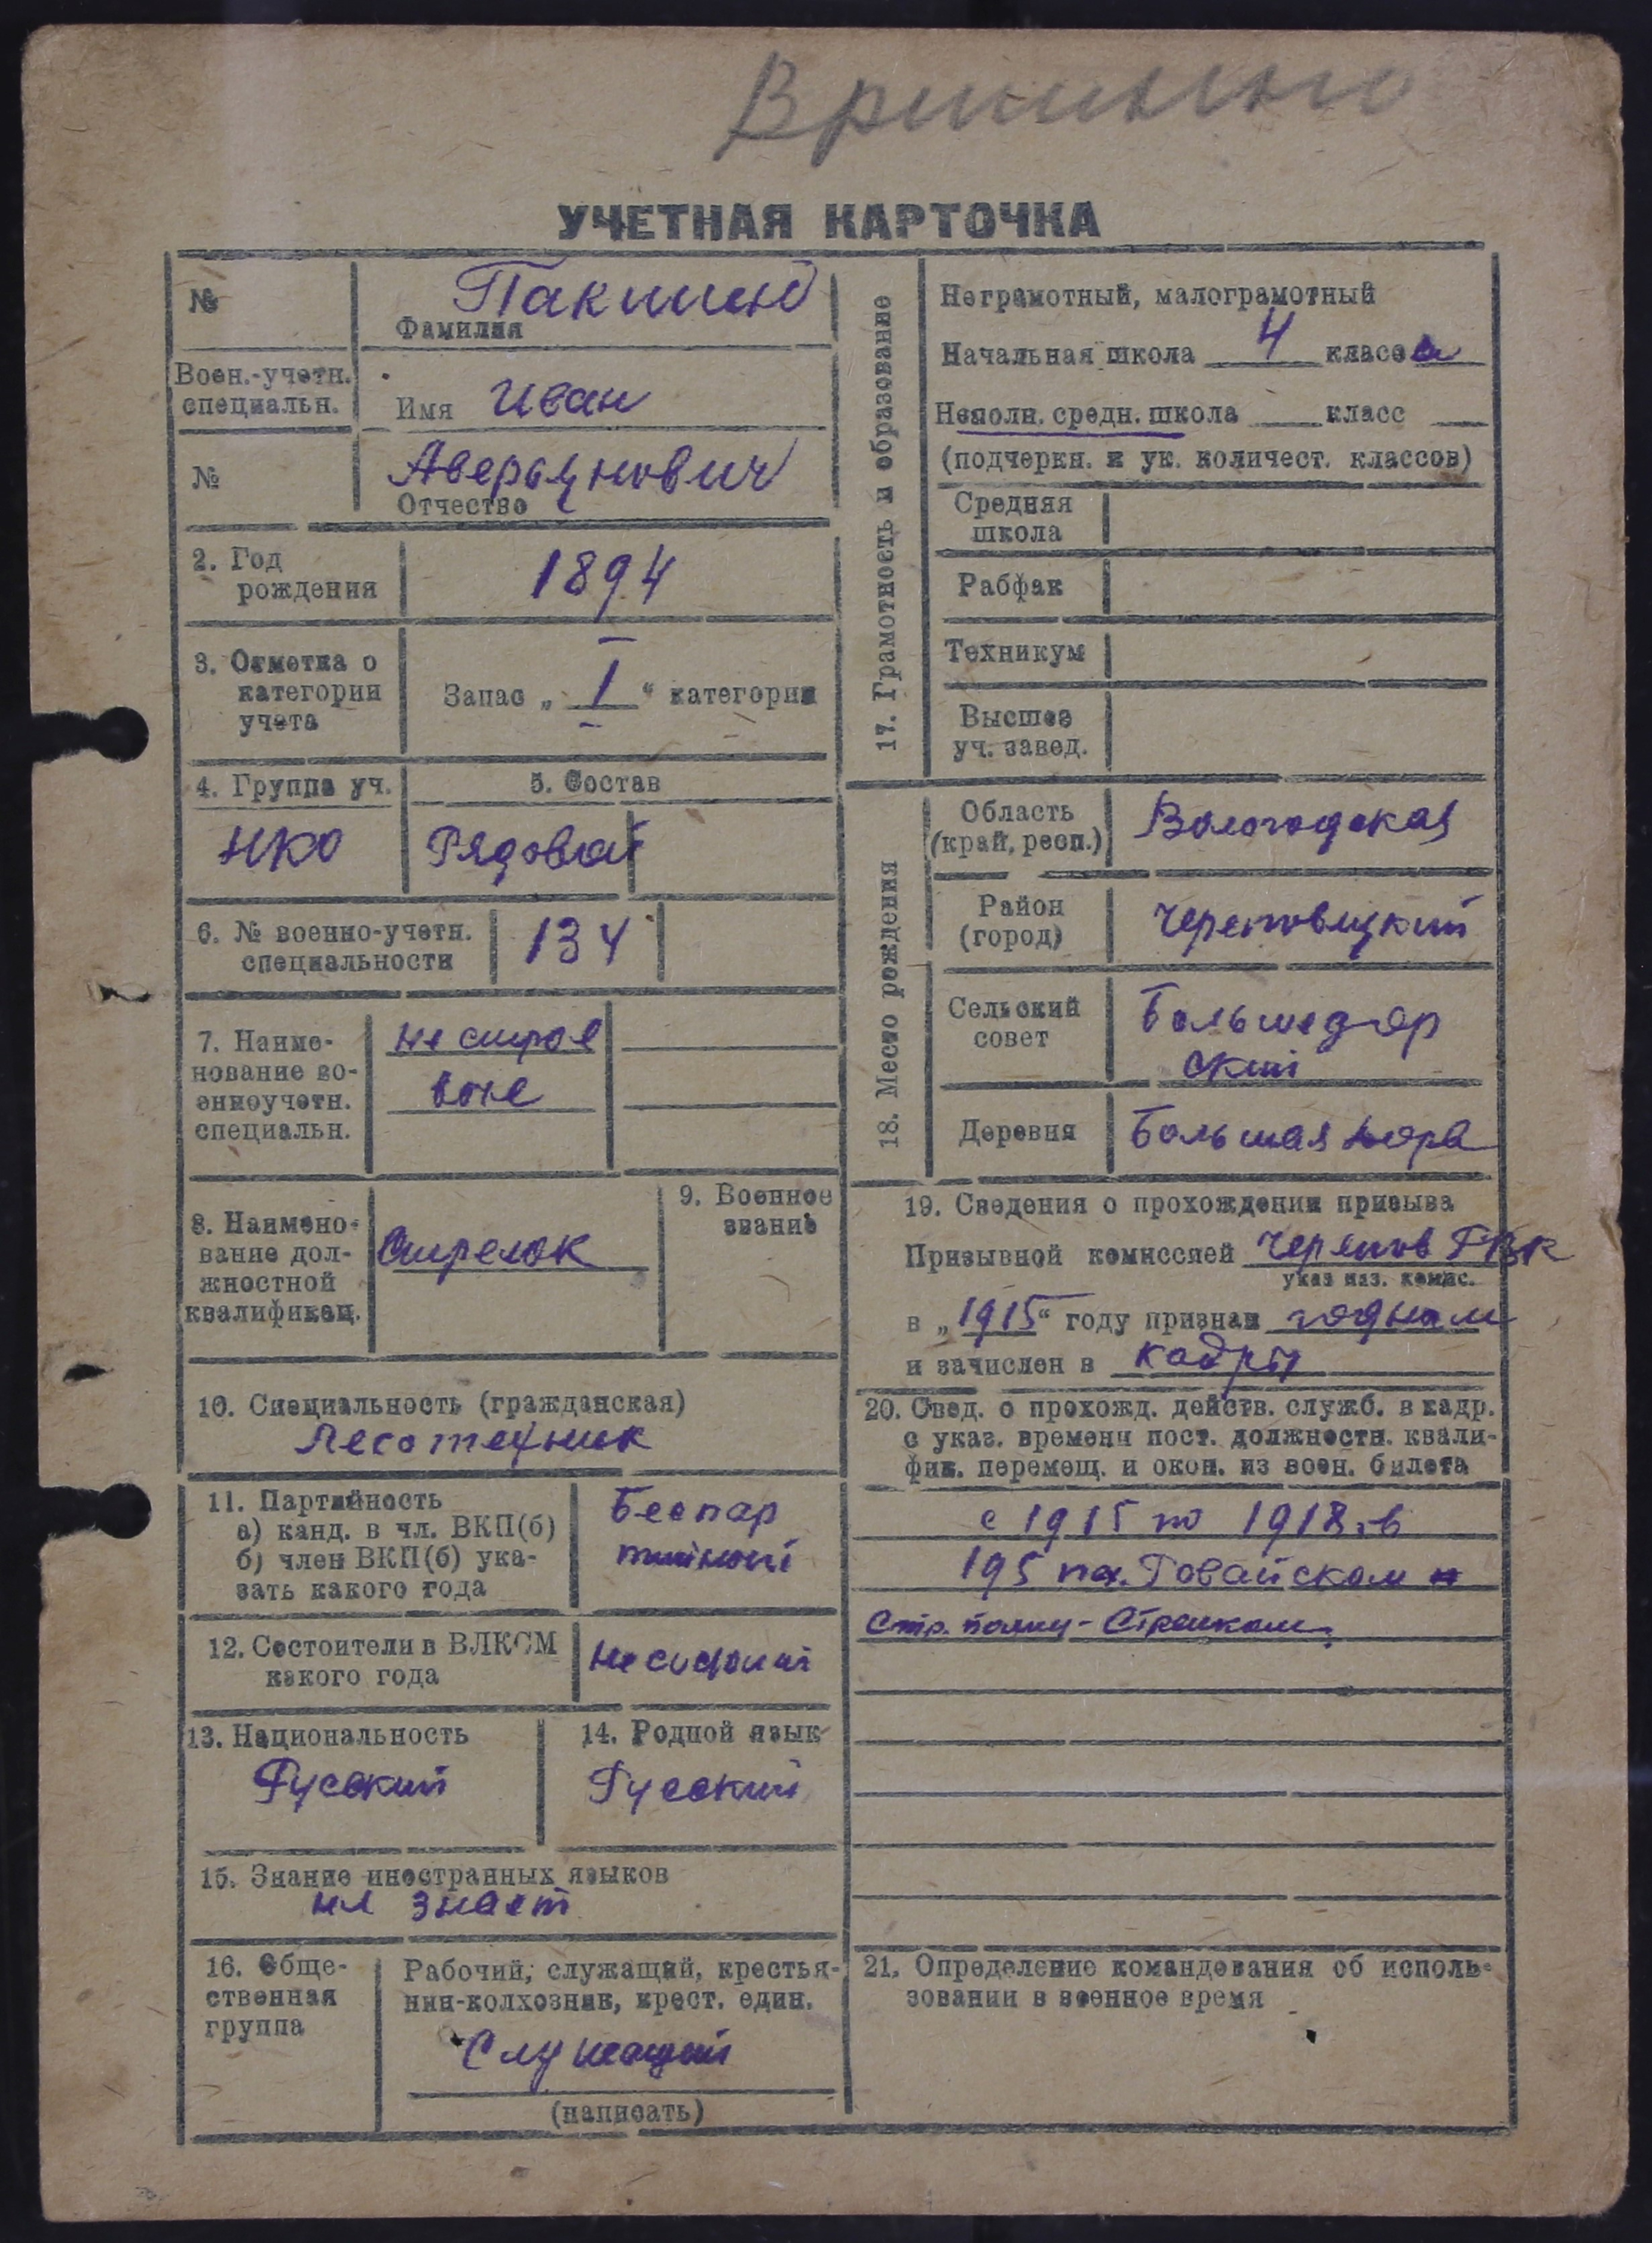 УЧЕТНАЯ КАРТОЧКА
№
Пакшинов
Фамилия
Воен.-учетн.
специальн.
Имя Иван
№
Аверьянович
Отчество
2. Год
рождения
1894
3. Отметка о
категории
учета
Запас „ I “ категории
4. Группа уч.
НКО
5. Состав
Рядовой
6. № военно-учетн.
специальности
134
7. Наиме-
нование во-
енноучетн.
специальн.
не строе
вое
8. Наимено-
вание дол-
жностной
квалификац.
Стрелок
9. Военное
звание
10. Специальность (гражданская)
Лесотехник
11. Партийность
а) канд. в чл. ВКП(б)
б) член ВКП(б) ука-
зать какого года
Беспар
тийный
12. Состоит ли в ВЛКСМ
какого года
13. Национальность
Русский
14. Родной язык
Русский
15. Знание иностранных языков
не знает
16. Обще-
ственная
группа
Рабочий, служащий, крестья-
нин-колхозник, крест. един.
Служащий
(написать)
17. Грамотность и образование
Неграмотный, малограмотный
Начальная школа 4 класса
Неполн. средн. школа класс
(подчеркн. и ук. количест. классов)
Средняя
школа
Рабфак
Техникум
Высшее
уч. завед.
18. Место рождения
Область
(край, респ.)
Вологодская
Район
(город)
Череповецкий
Сельский
совет
Большедвор
ский
Деревня
Большая
19. Сведения о прохождении призыва
Призывной комиссией Черепов ГВК
указ наз. комис.
в „1915“ году признан годным
и зачислен в кадры
20. Свед. о прохожд. действ. служб. в кадр.
с указ. времени пост. должностн. квали-
фик. перемещ. и окон. из воен. билета
с 1915 по 1918 в
195 пех.
Стр. полку - Стрелком.
21. Определение командования об исполь-
зовании в военное время